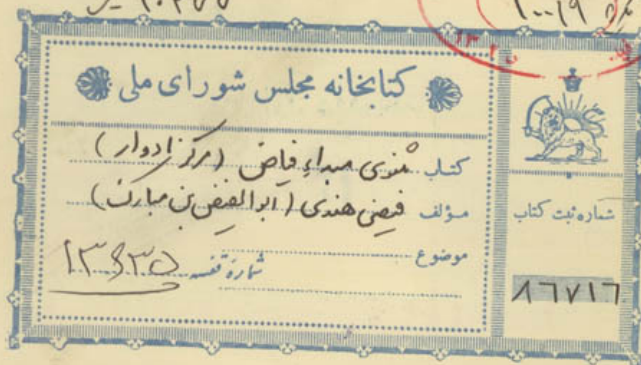 ۱۰۰۱۹
کتابخانه مجلس شورای ملی
کتاب مثنوی مبداء فیاض (مرکز ادوار)
مؤلف فیضی هندی (ابوالفیض بن مبارک)
موضوع
شماره قفسه ۱۳۶۳۵
شماره ثبت کتاب
۸۶۷۱۶